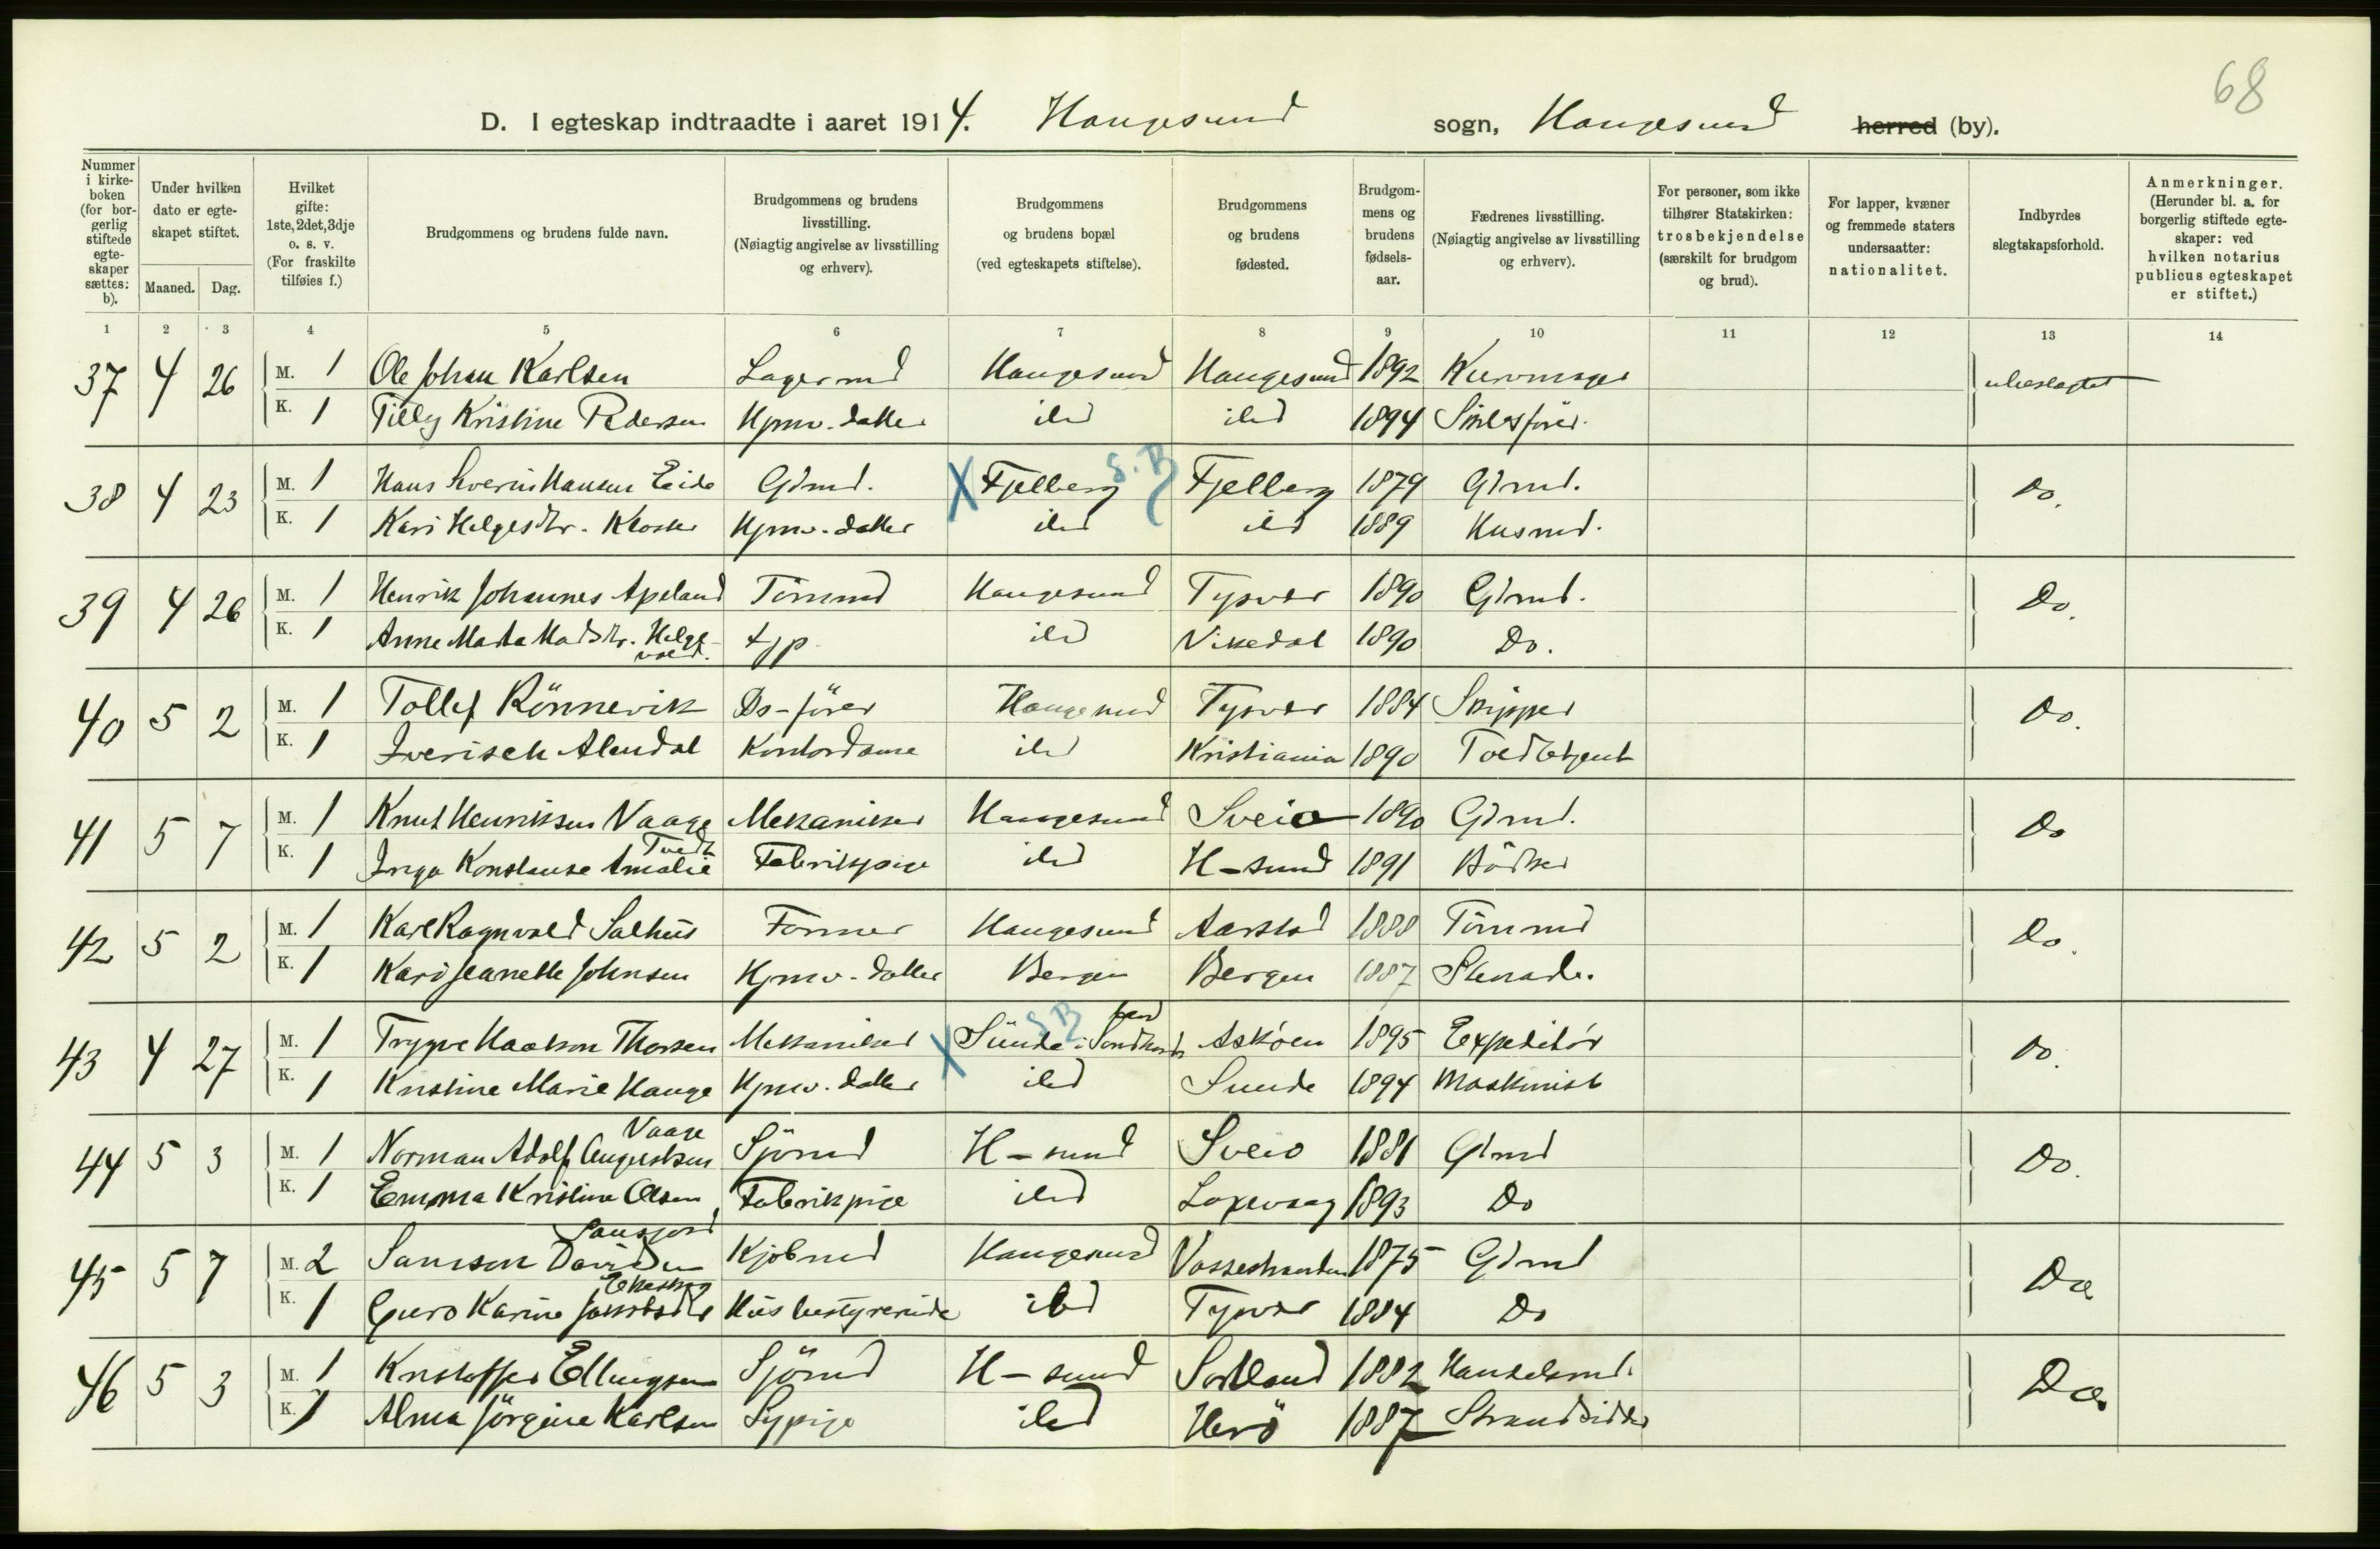 68
D. I egteskap indtraadte i aaret 1914. Haugesund sogn, Haugesund herred (by).
Nummer i kirkeboken (for borgerlig stiftede egteskaper sættes: b).
Under hvilken dato er egteskapet stiftet.
Maaned. Dag.
Hvilket gifte: 1ste, 2det, 3dje o. s. v. (For fraskilte tilføies f.)
Brudgommens og brudens fulde navn.
Brudgommens og brudens livsstilling. (Nøiagtig angivelse av livsstilling og erhverv).
Brudgommens og brudens bopæl (ved egteskapets stiftelse).
Brudgommens og brudens fødested.
Brudgommens og brudens fødselsaar.
Fædrenes livsstilling. (Nøiagtig angivelse av livsstilling og erhverv).
For personer, som ikke tilhører Statskirken: trosbekjendelse (særskilt for brudgom og brud).
For lapper, kvæner og fremmede staters undersaatter: nationalitet.
Indbyrdes slegtskapsforhold.
Anmerkninger. (Herunder bl. a. for borgerlig stiftede egteskaper: ved hvilken notarius publicus egteskapet er stiftet.)
1 2 3 4 5 6 7 8 9 10 11 12 13 14
37 4 26 M. 1 Ole Johan Karlsen Lagermd Haugesund Haugesund 1892 Kurvmager ubeslegtet
K. 1 Tilly Kristine Pedersen Hjmv. datter ibd ibd 1894 Skibsfører.
38 4 23 M. 1 Hans Sverin Hansen Eide Gdmd. X Fjelberg S.B Fjelberg 1879 Gdmd. Do.
K. 1 Kari Helgesdtr. Kloster Hjmv. datter ibd ibd 1889 Husmd.
39 4 26 M. 1 Henrik Johannes Apeland Tömmd Haugesund Tysvær 1890 Gdmd. Do.
K. 1 Anne Marta Madsdtr. Helgevold. tjp ibd Vikedal 1890 Do.
40 5 2 M. 1 Tollef Rönnevik Ds-förer Haugesund Tysvær 1884 Skipper Do.
K. 1 Alendal Kontordame ibd Kristiania 1890 Toldbetjent
41 5 7 M. 1 Knut Henriksen Vaage Mekaniker Haugesund Sveio 1890 Gdmd. Do
K. 1 Inga Konstanse Amalie Tvedt Fabrikpige ibd H-sund 1891 Bödker
42 5 2 M. 1 Karl Ragnvald Salhus Former Haugesund Aarstad 1888 Tömmd Do.
K. 1 Kari Jeanette Johnsen Hjmv. datter Bergen Bergen 1887
43 4 27 M. 1 Trygve Haakon Thorsen Mekaniker X Sunde i Söndhordland S B Askøen 1895 Expeditør Do.
K. 1 Kristine Marie Hauge Hjmv. datter ibd Sunde 1894 Maskinist
44 5 3 M. 1 Norman Adolf Augustsen Vaage Sjömd H-sund Sveio 1881 Gdmd Do.
K. 1 Emma Kristine Olsen Fabrikpige ibd Laxevaag 1893 Do
45 5 7 M. 2 Samson Davidsen Kjöbmd Haugesund Vossestranden 1875 Gdmd Do
K. 1 Guro Karine Jakobsdtr Husbestyrerinde ibd Tysvær 1884 Do
46 5 3 M. 1 Kristoffer Ellingsen Sjömd H-sund Sortland 1882 Handelsmd. Do.
K. 1 Alma Jörgine Karlsen Sypige ibd Herö 1887 Strandsidder